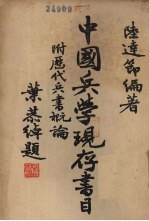 24900
陸達節編著
中國兵學現存書目
附歷代兵書概論
葉恭綽題